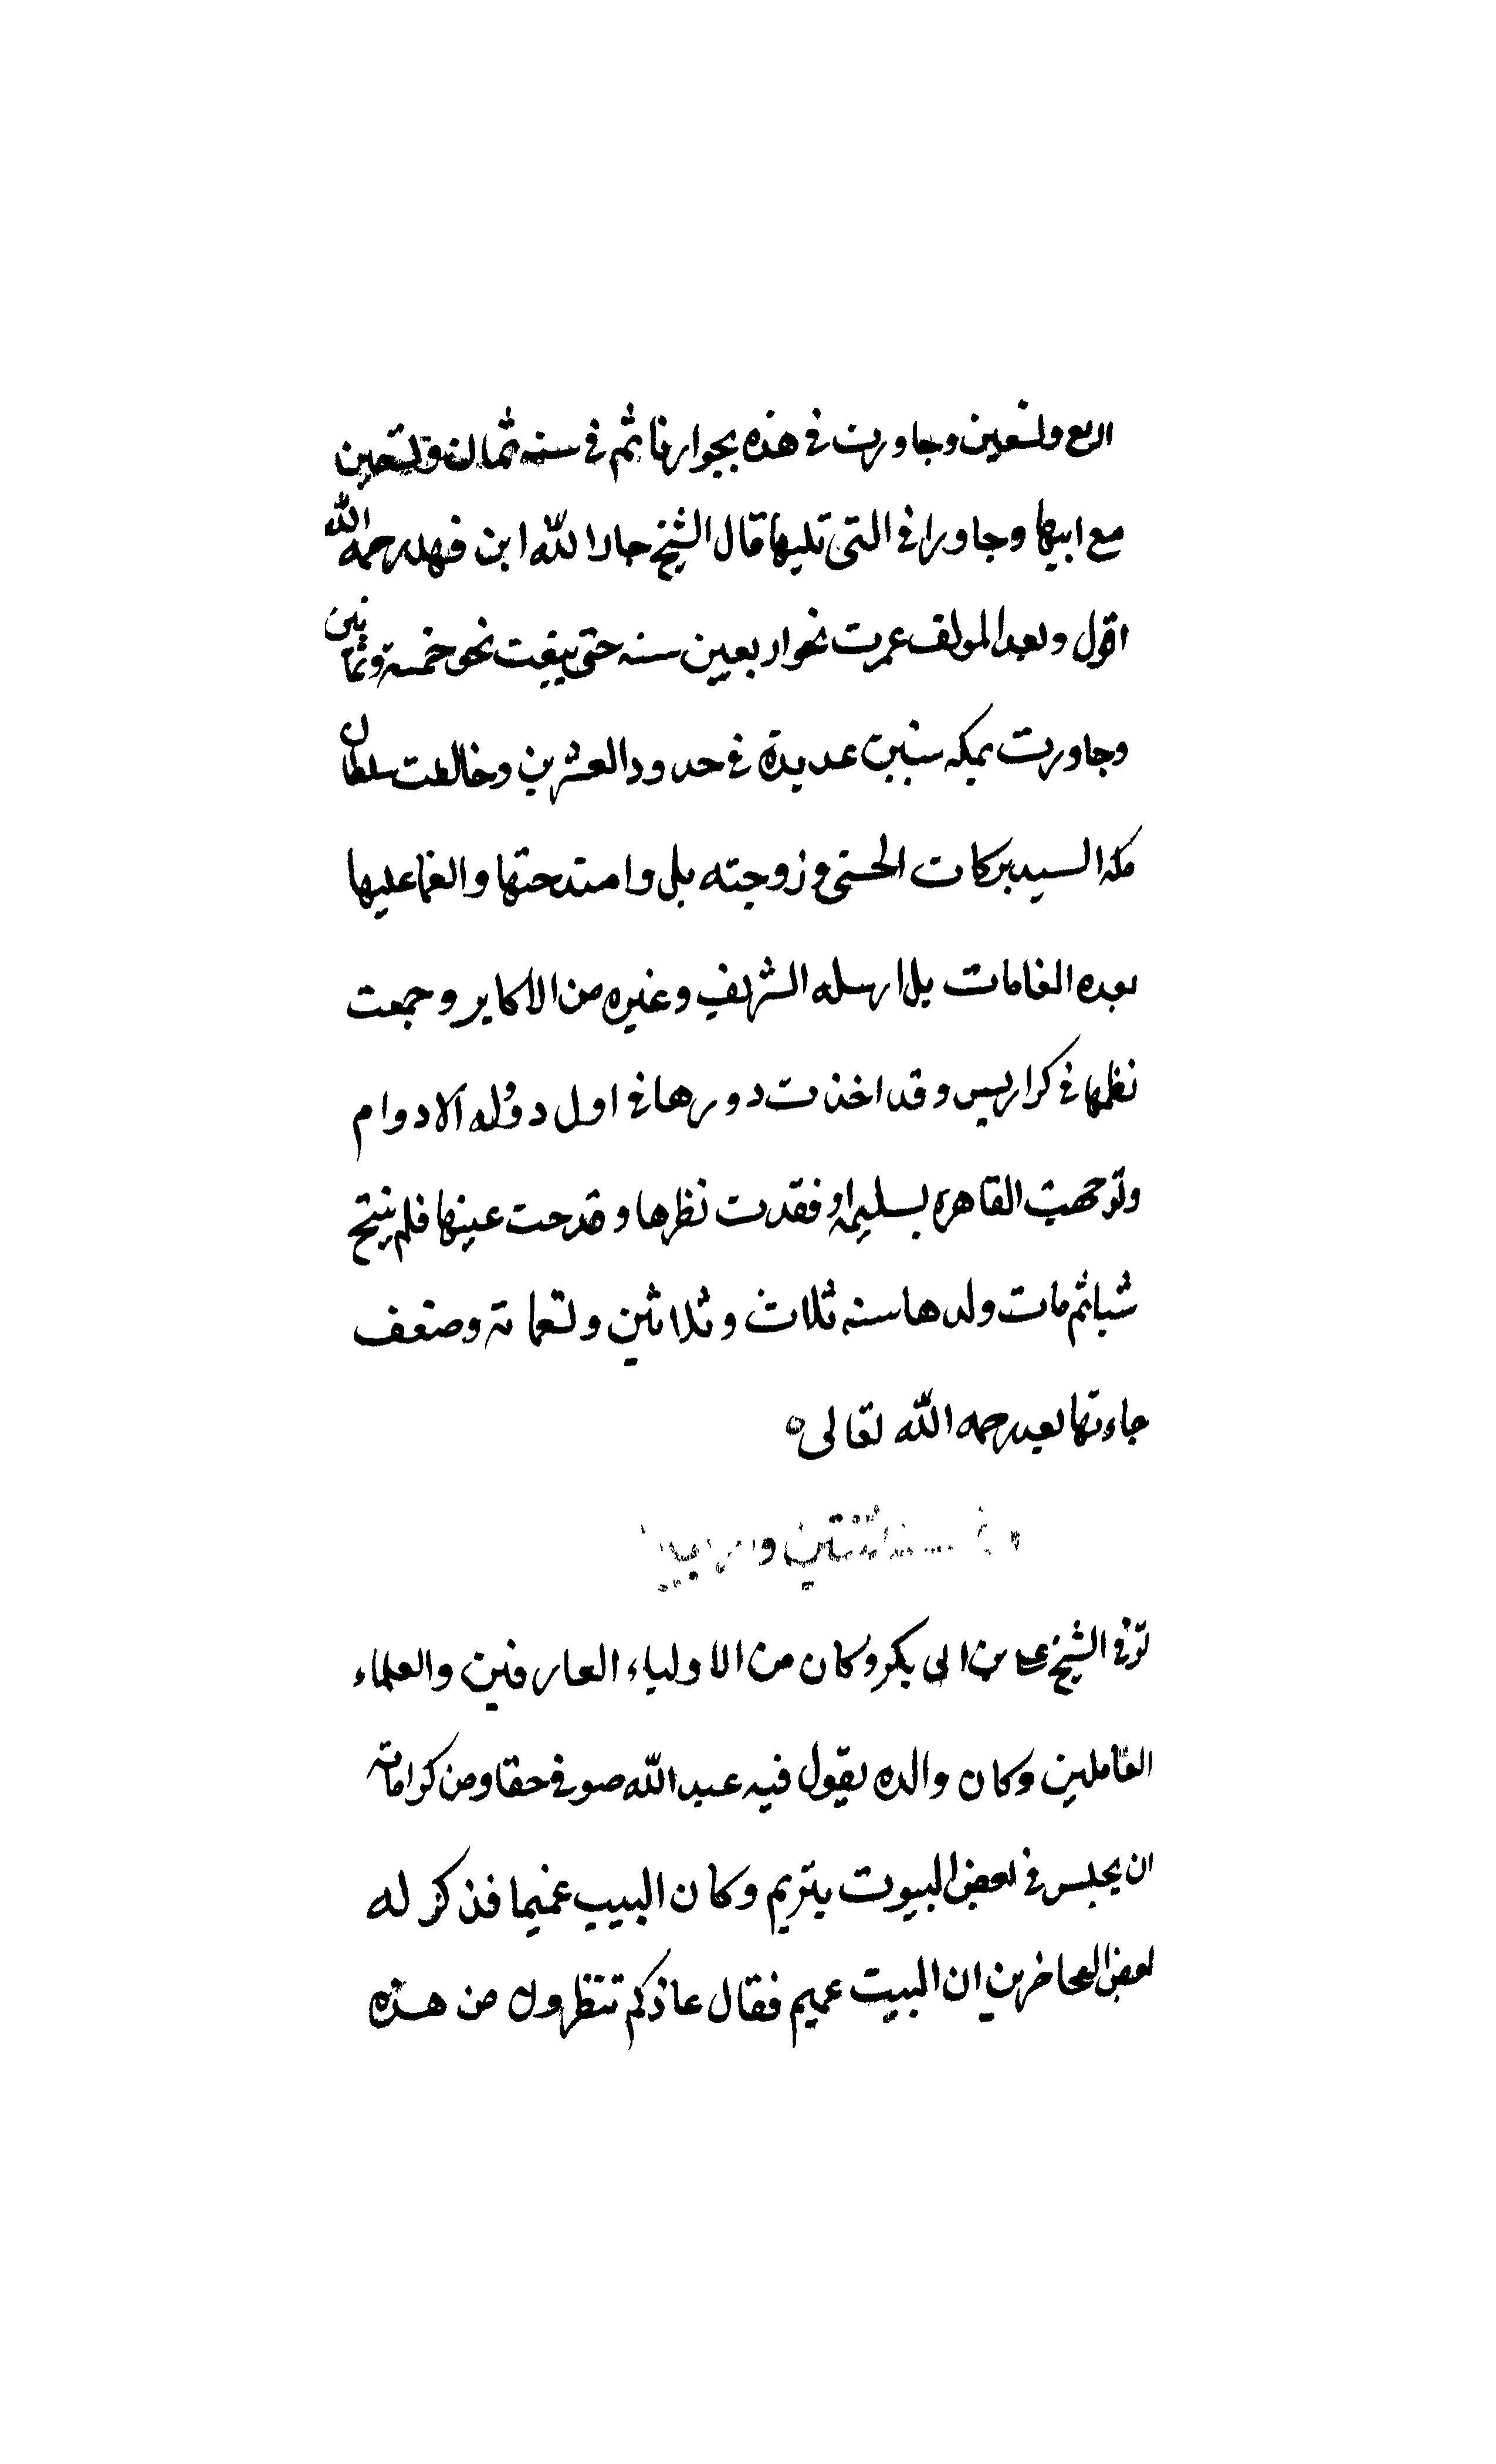 اربع وتسعين وجاورت في هذه بجوارنا ثم في سنه ثمان وتسعين
مع ابيها وجاورا في التي تليها قال الشيخ جار الله ابن فهد رحمه الله
اقول وبعد المولف عمرت نحو اربعين سنه حتى بقيت نحو خمسة وثمانين
وجاورت بمكه سنين عديدة في حدود العشرين وخالطت سلطان
مكه السيد بركات الحسني وزوجته بل وامتدحتها والغا عليها
بعده الغامات بل ارسله الشريف وغيره من الاكابر وجمعت
نظمها في كراريس وقد اخذت دورها في اول دولة الاروام
وتوجهت القاهره لسليم او فقدت نظرها وقدحت عينها فلم ينتج
شيا ثم مات ولدها سنه ثلاث وثلاثين وتسعماية وضعف
جاءتها بعد رحمه الله تعالى
في سنة اثنتين
توفي الشيخ بن ابي بكر وكان من الاولياء العارفين والعلماء
العاملين وكان والده يقول فيه عبد الله صوفي حقا ومن كراماته
ان يجلس في بعض البيوت بتريم وكان البيت عميما فذكر له
بعض الحاضرين ان البيت عميم فقال عاذكم تنظرون من هذه